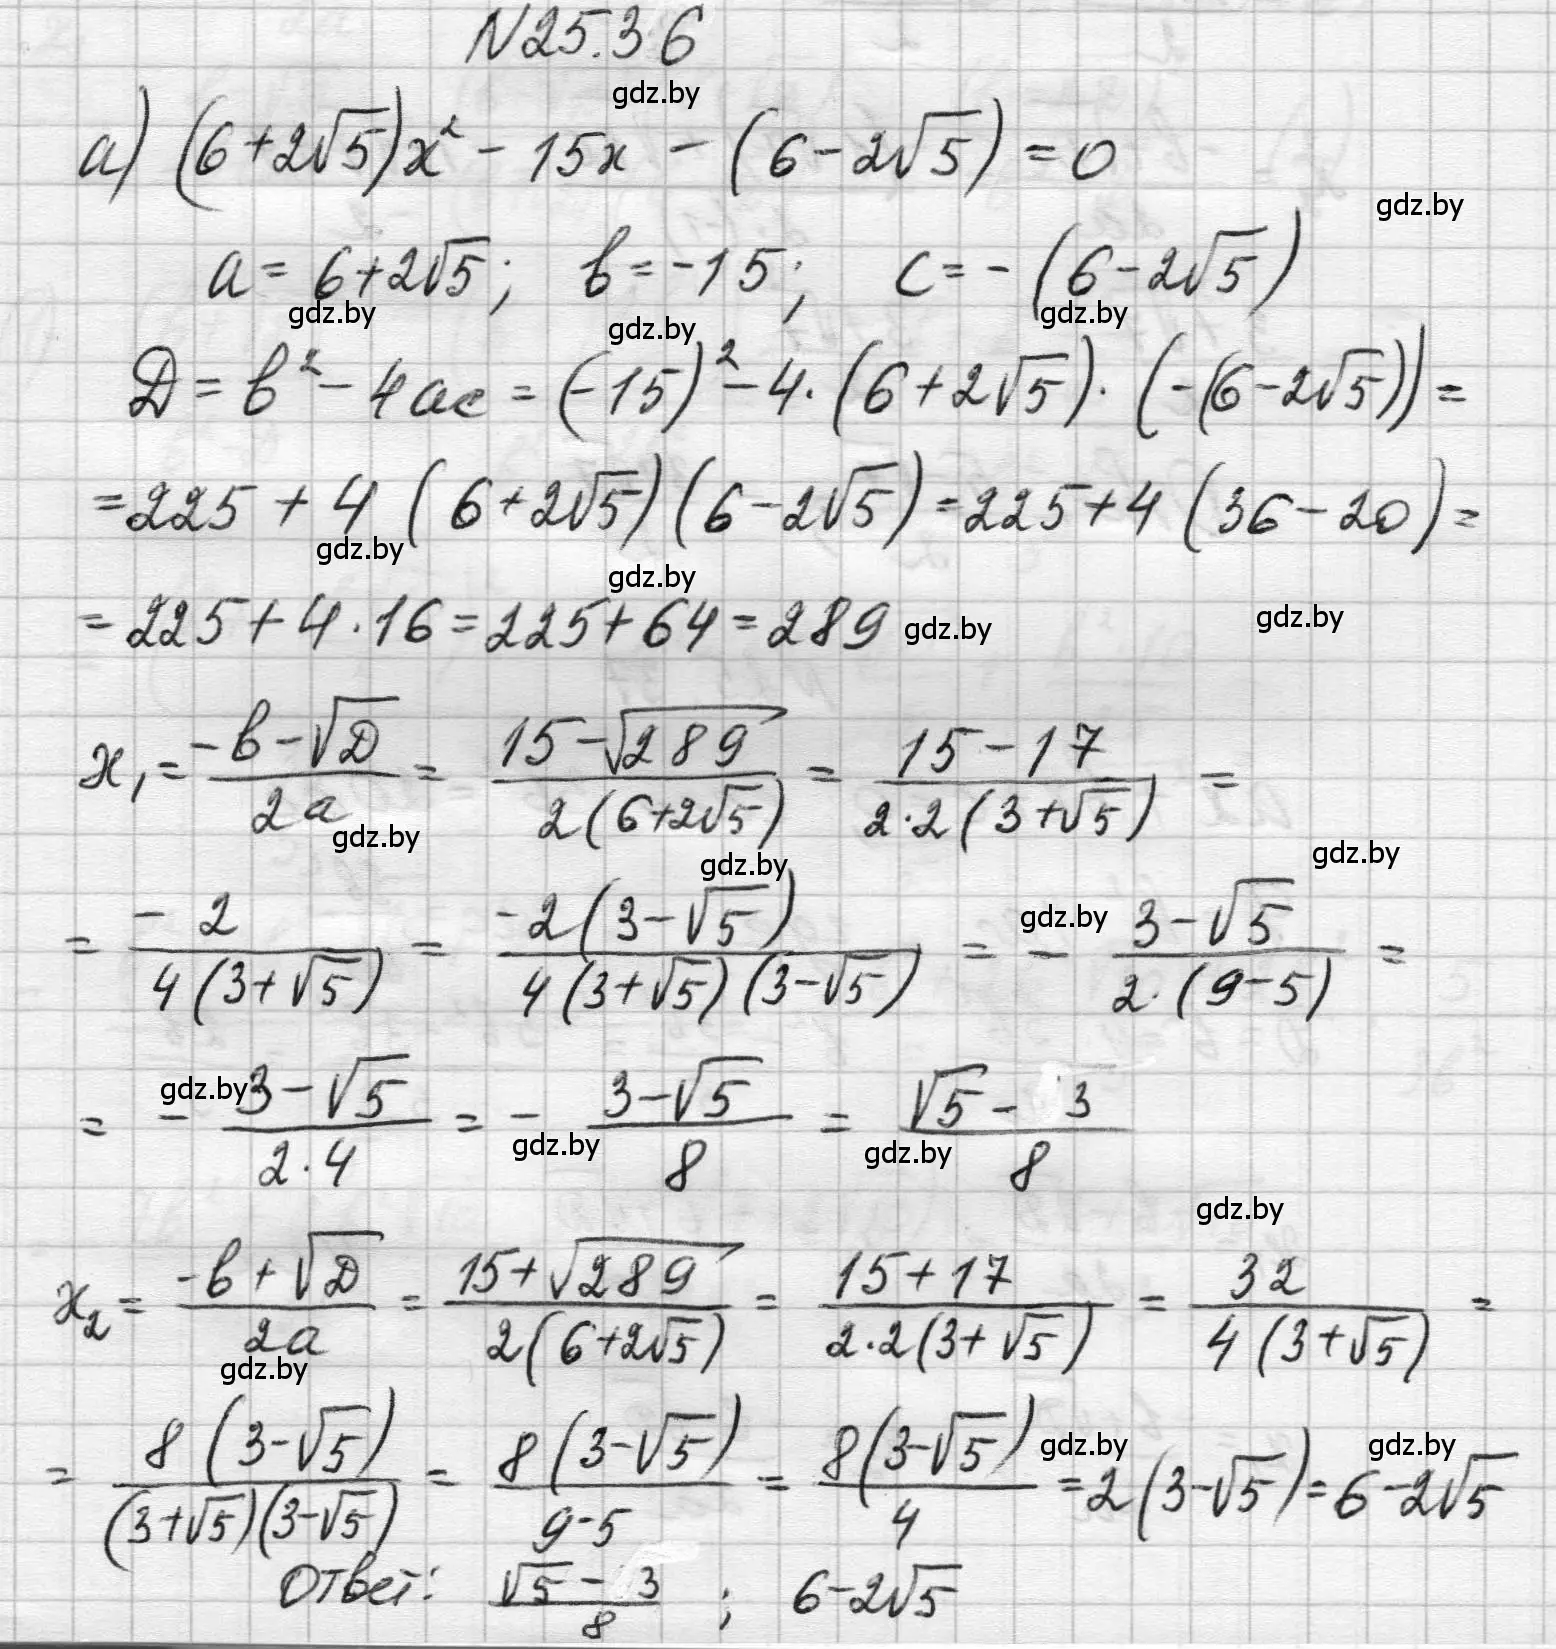 N25.36
gdz.by
а) (6+2√5)x² - 15x - (6-2√5) = 0
gdz.by
a = 6+2√5; b = -15; c = -(6-2√5)
gdz.by gdz.by gdz.by
D = b² - 4ac = (-15)² - 4·(6+2√5)·(-(6-2√5)) =
= 225 + 4(6+2√5)(6-2√5) = 225+4(36-20) =
gdz.by gdz.by
= 225+4·16 = 225+64 = 289 gdz.by gdz.by
x₁ = (-b-√D)/(2a) = (15-√289)/(2(6+2√5)) = (15-17)/(2·2(3+√5)) =
gdz.by gdz.by gdz.by
= (-2)/(4(3+√5)) = (-2(3-√5))/(4(3+√5)(3-√5)) = - (3-√5)/(2·(9-5)) =
gdz.by
= - (3-√5)/(2·4) = - (3-√5)/8 = (√5-3)/8
gdz.by gdz.by gdz.by
gdz.by
x₂ = (-b+√D)/(2a) = (15+√289)/(2(6+2√5)) = (15+17)/(2·2(3+√5)) = 32/(4(3+√5)) =
gdz.by
= (8(3-√5))/((3+√5)(3-√5)) = (8(3-√5))/(9-5) = (8(3-√5))/4 = 2(3-√5) = 6-2√5
gdz.by gdz.by
Ответ: (√5-3)/8 ; 6-2√5